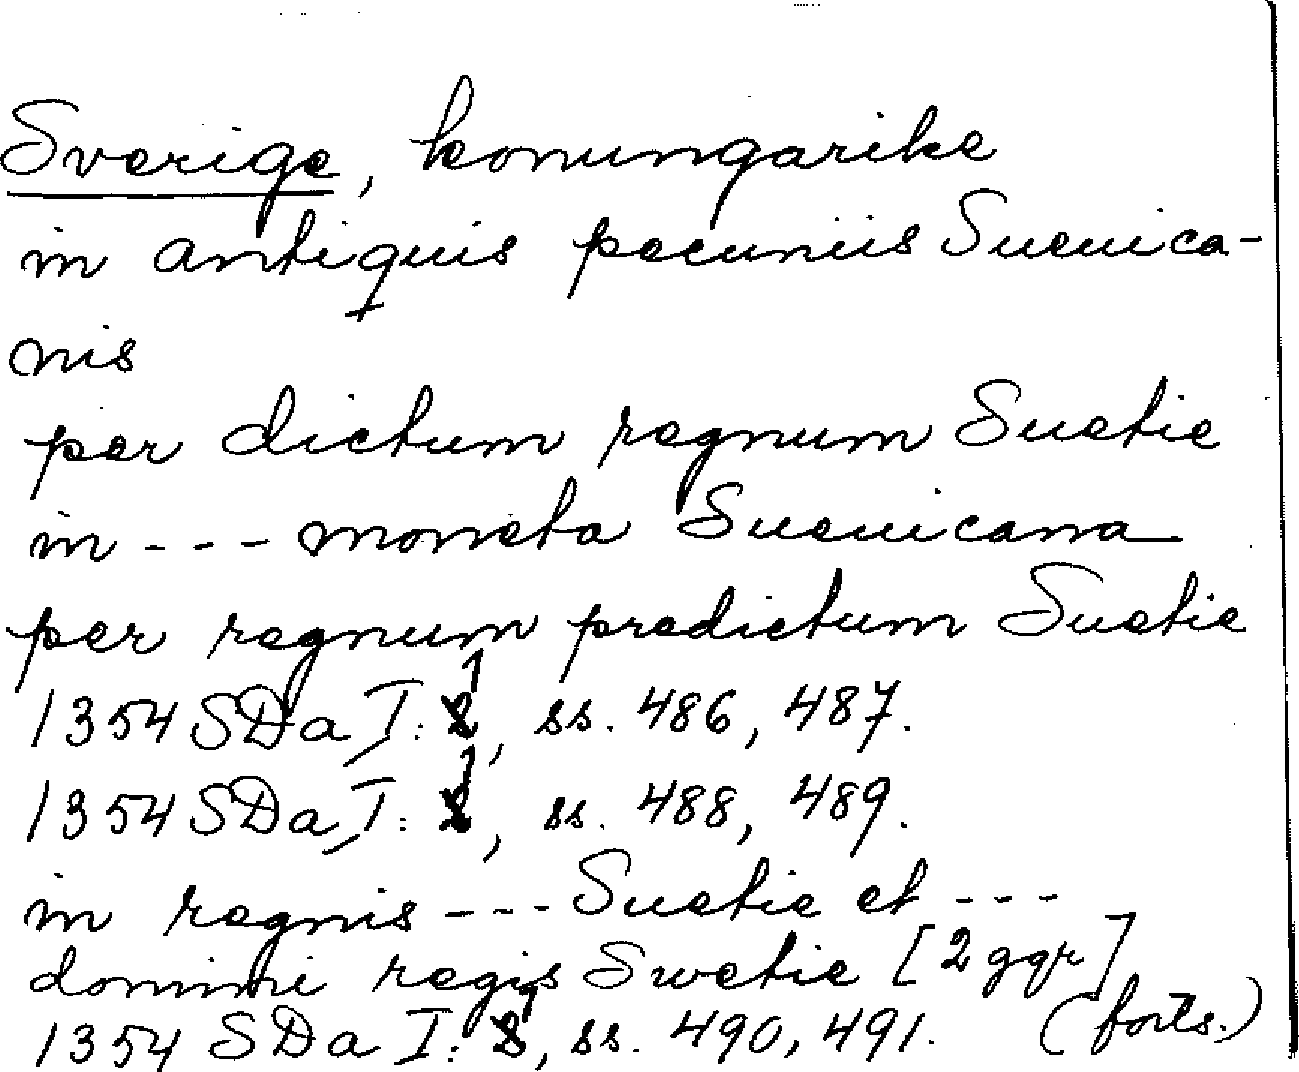 Sverige, konungarike
in antiquis pecuniis Sueuica-
nis
per dictum regnum Suetie
in --- moneta Sueuicana
per regnum predictum Suetie
1354 SDa I:1, ss. 486, 487.
1354 SDa I:1, ss. 488, 489.
in regnis --- Suetie et ---
domini regis Swetie [2 ggr]
1354 SDa I:1, ss. 490, 491. (forts.)